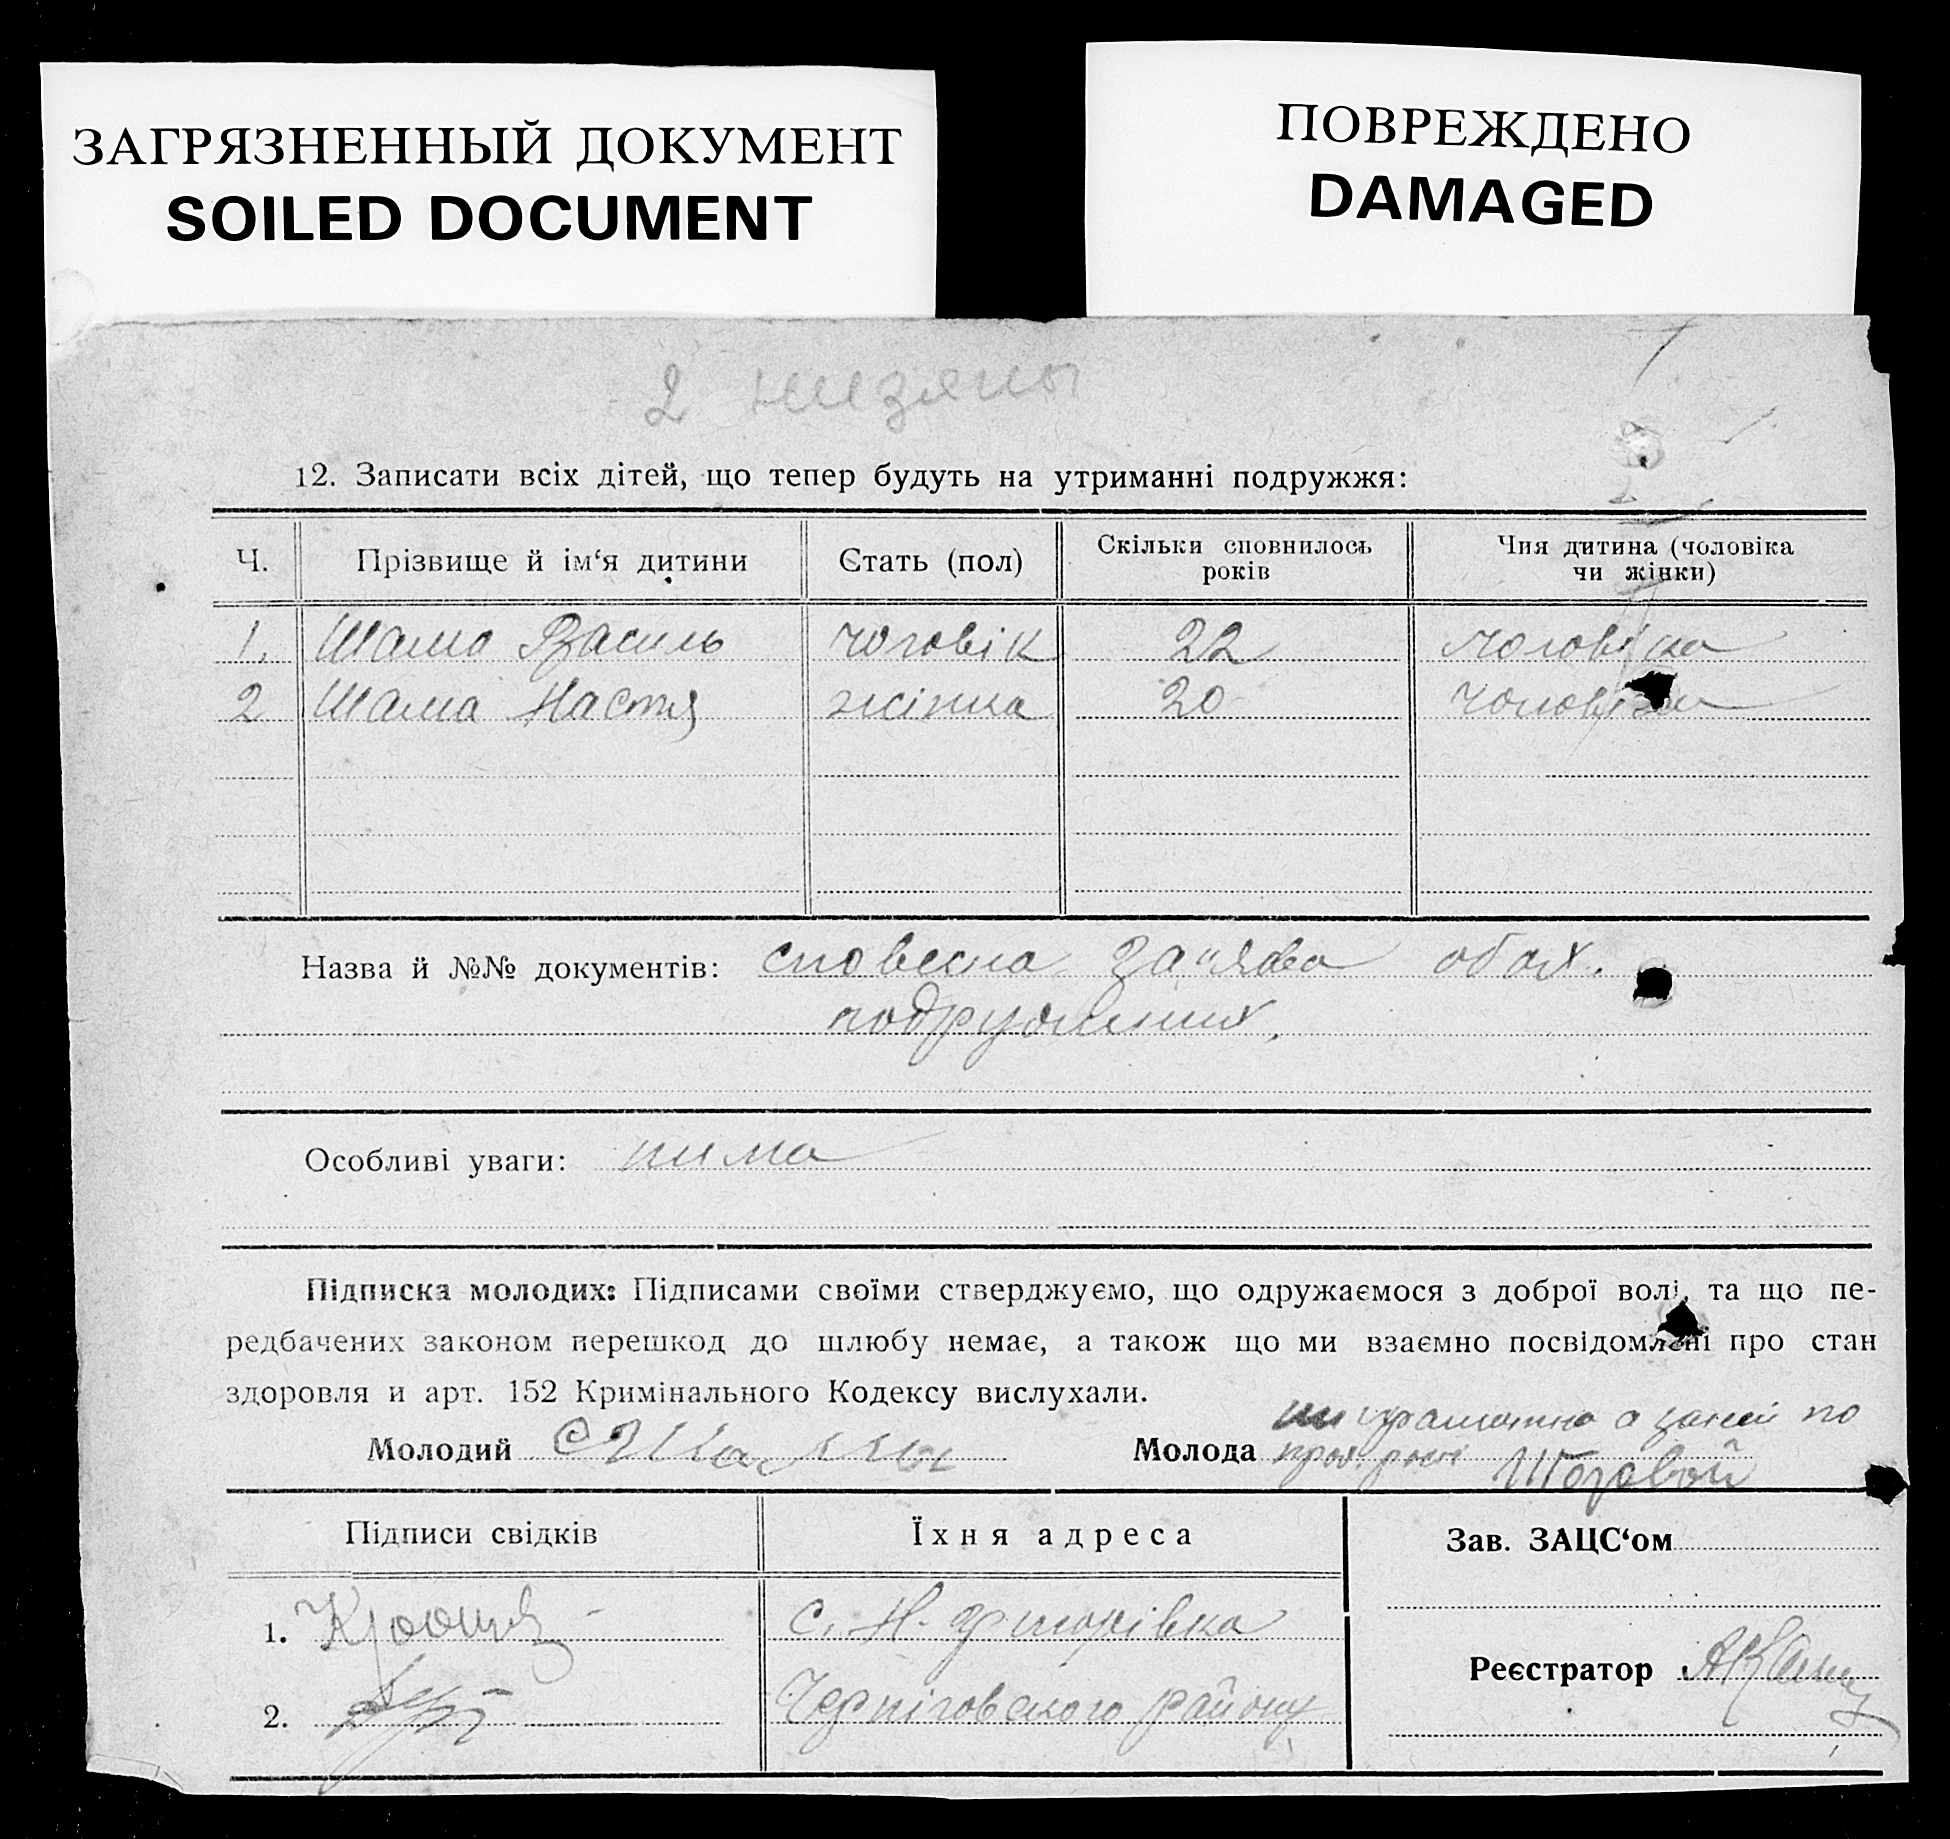 ЗАГРЯЗНЕННЫЙ ДОКУМЕНТ
SOILED DOCUMENT
ПОВРЕЖДЕНО
DAMAGED
2
12. Записати всіх дітей, що тепер будуть на утриманні подружжя:
Ч. Прізвище й ім‘я дитини Стать (пол) Скільки сповнилось років Чия дитина (чоловіка чи жінки)
1. Шама Василь чоловік 22 чоловіка
2 Шама Настя жінка 20 чоловіка
Назва й №№ документів: словесна заʼява обох
подружніх.
Особливі уваги: нима
Підписка молодих: Підписами своїми стверджуємо, що одружаємося з доброї волі, та що пе-
редбачених законом перешкод до шлюбу немає, а також що ми взаємно посвідомлені про стан
здоровля и арт. 152 Кримінального Кодексу вислухали.
ниграмотна а за ней по
Молодий С Шама Молода
Підписи свідків Їхня адреса Зав. ЗАЦС‘ом
1. с. Н. Григорівка
Реєстратор
2. Черніговского району